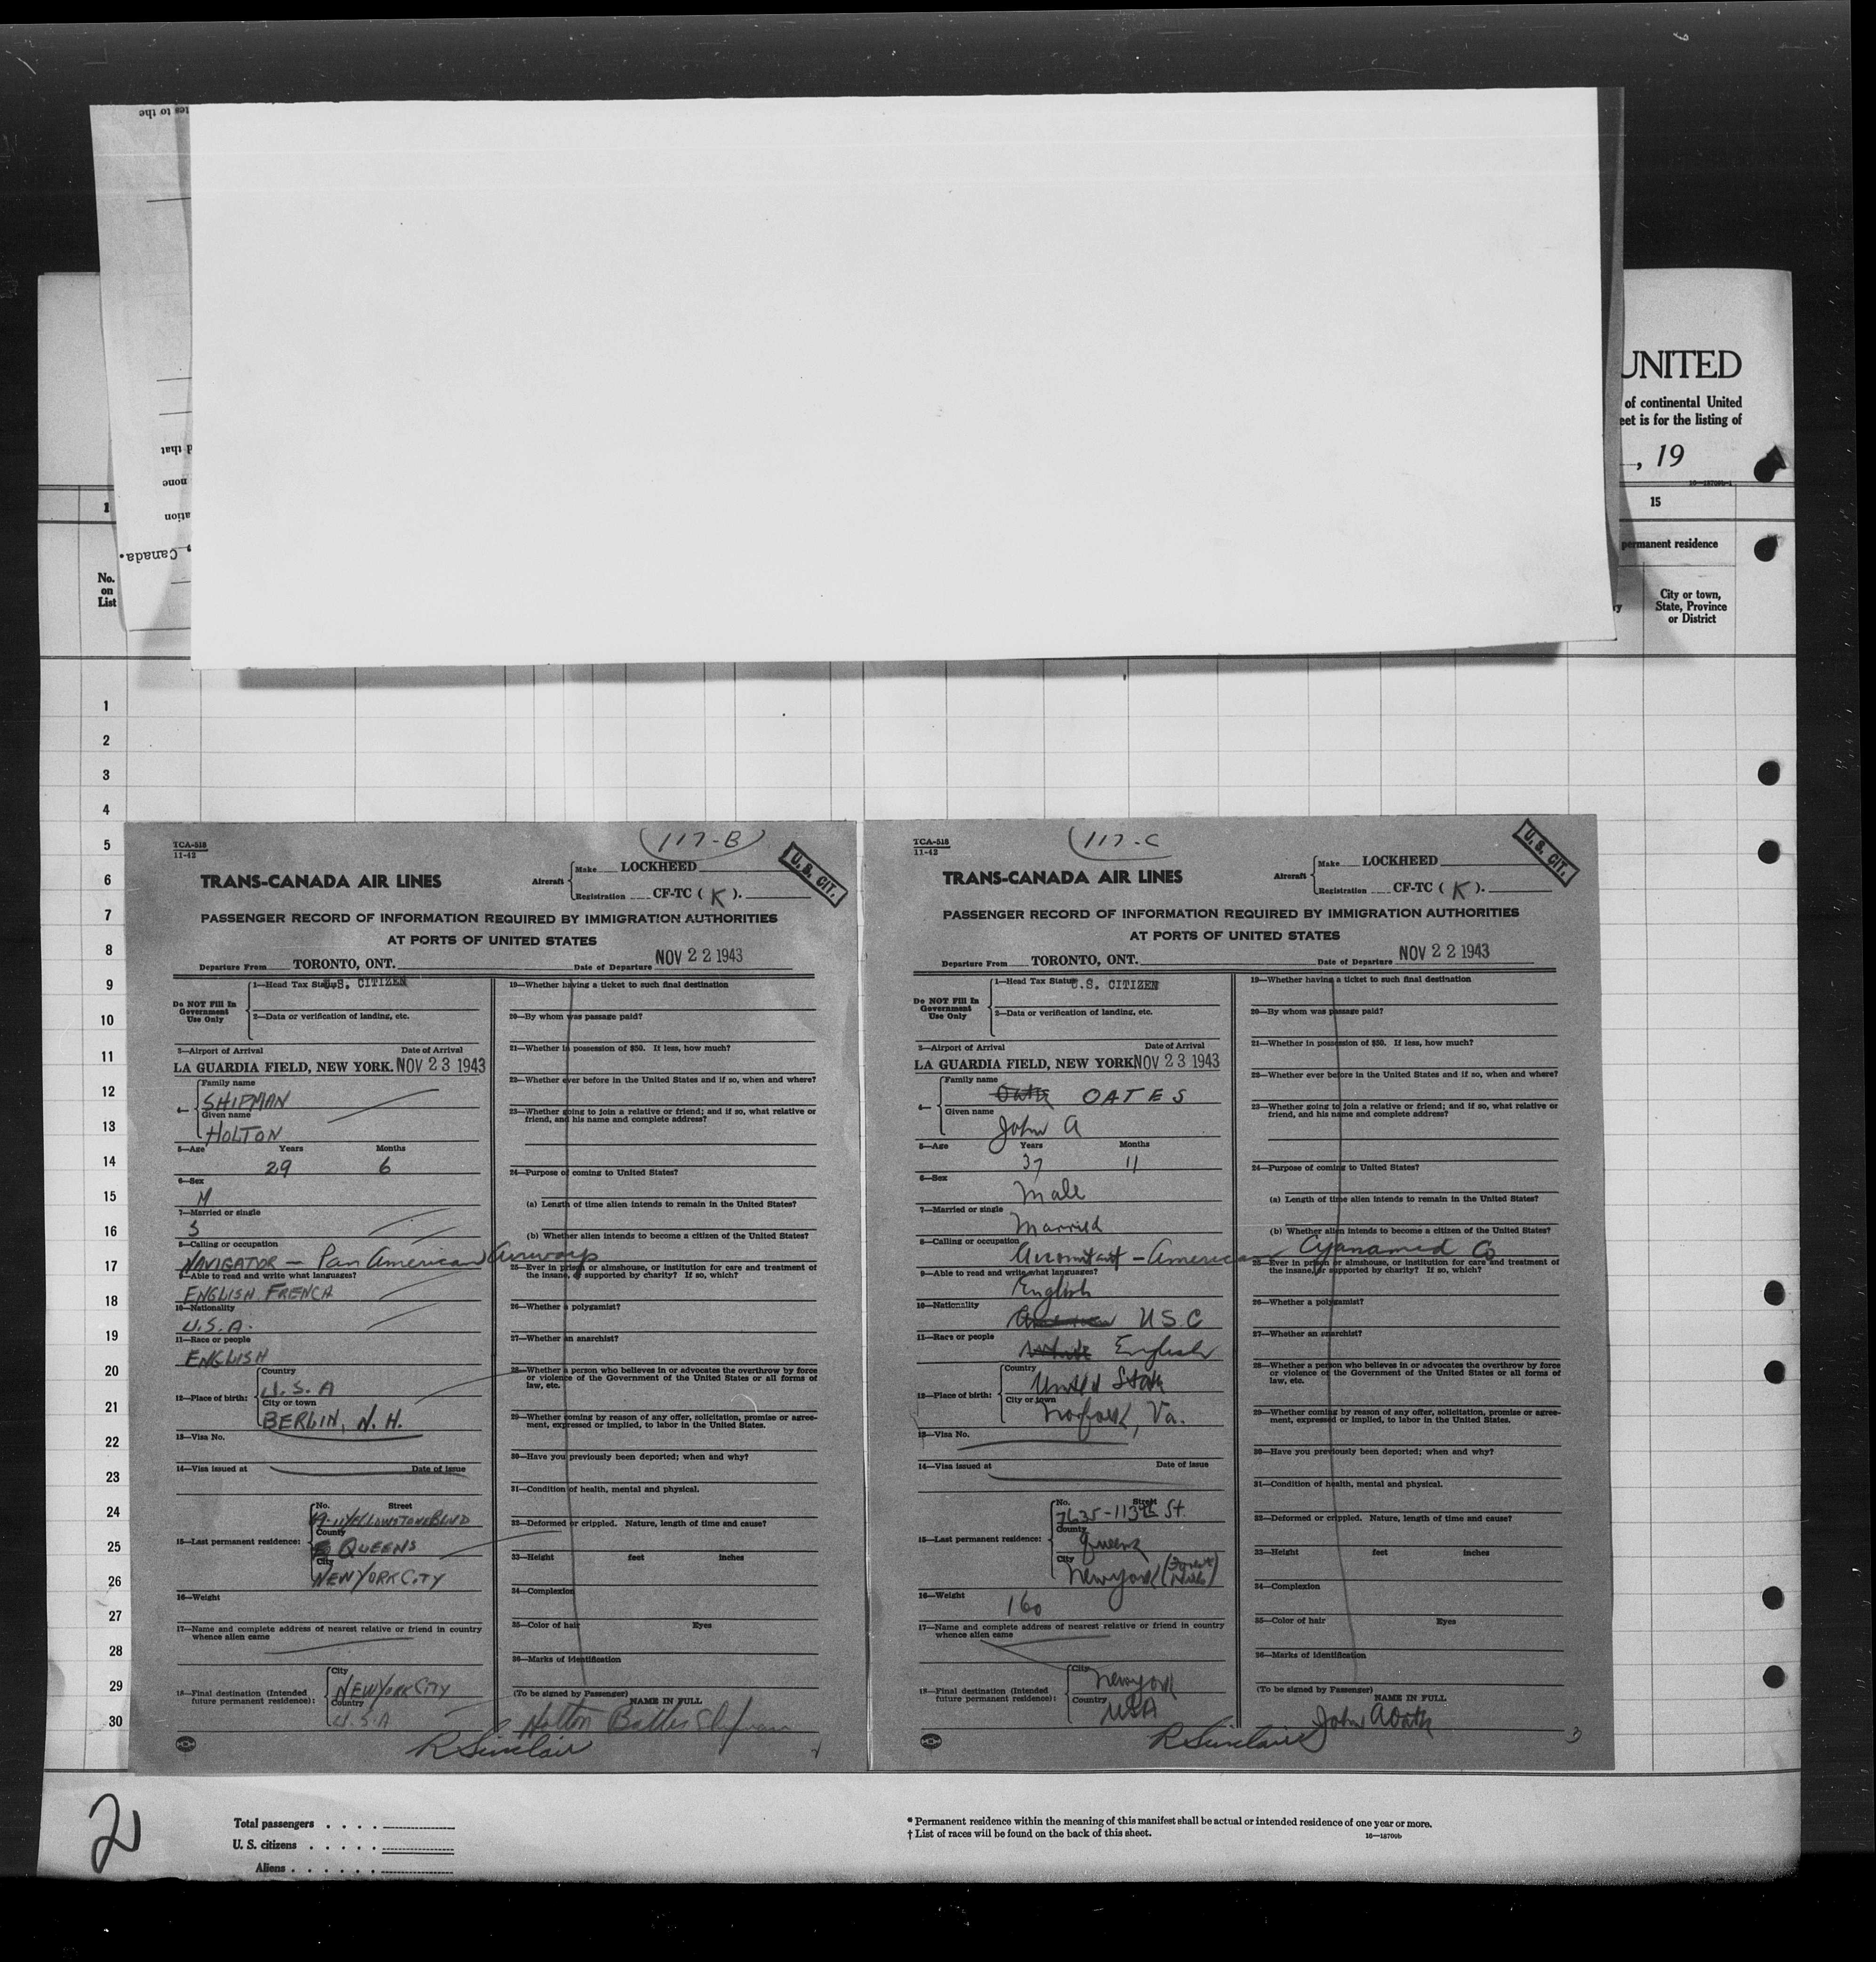 UNITED
of continental United
eet is for the listing of
, 19
16—18700b-1
15
permanent residence
No.
on
List
City or town,
State, Province
or District
tes to the
d that
none
ation
, Canada.
1
2
3
4
5
6
7
8
9
10
11
12
13
14
15
16
17
18
19
20
21
22
23
24
25
26
27
28
29
30
TCA-518
11-42
117-B
U. S. CIT.
TRANS-CANADA AIR LINES
Aircraft
Make LOCKHEED
Registration CF-TC ( K ).
PASSENGER RECORD OF INFORMATION REQUIRED BY IMMIGRATION AUTHORITIES
AT PORTS OF UNITED STATES
Departure From TORONTO, ONT. Date of Departure NOV 22 1943
Do NOT Fill In
Government
Use Only
1—Head Tax Status U.S. CITIZEN
2—Data or verification of landing, etc.
3—Airport of Arrival Date of Arrival
LA GUARDIA FIELD, NEW YORK. NOV 23 1943
4—
Family name
SHIPMAN
Given name
HOLTON
5—Age Years Months
29 6
6—Sex
M
7—Married or single
S
8—Calling or occupation
NAVIGATOR — Pan American Airways
9—Able to read and write what languages?
ENGLISH FRENCH
10—Nationality
U.S.A.
11—Race or people
ENGLISH
12—Place of birth:
Country
U.S.A
City or town
BERLIN, N.H.
13—Visa No.
14—Visa issued at Date of issue
15—Last permanent residence:
No. Street
69-11 YELLOWSTONE BLVD
County
QUEENS
City
NEW YORK CITY
16—Weight
17—Name and complete address of nearest relative or friend in country
whence alien came
18—Final destination (Intended
future permanent residence):
City
NEW YORK CITY
Country
U.S.A
19—Whether having a ticket to such final destination
20—By whom was passage paid?
21—Whether in possession of $50. If less, how much?
22—Whether ever before in the United States and if so, when and where?
23—Whether going to join a relative or friend; and if so, what relative or
friend, and his name and complete address?
24—Purpose of coming to United States?
(a) Length of time alien intends to remain in the United States?
(b) Whether alien intends to become a citizen of the United States?
25—Ever in prison or almshouse, or institution for care and treatment of
the insane, or supported by charity? If so, which?
26—Whether a polygamist?
27—Whether an anarchist?
28—Whether a person who believes in or advocates the overthrow by force
or violence of the Government of the United States or all forms of
law, etc.
29—Whether coming by reason of any offer, solicitation, promise or agree-
ment, expressed or implied, to labor in the United States.
30—Have you previously been deported; when and why?
31—Condition of health, mental and physical.
32—Deformed or crippled. Nature, length of time and cause?
33—Height feet inches
34—Complexion
35—Color of hair Eyes
36—Marks of identification
(To be signed by Passenger)
NAME IN FULL
Holton Battes Shipman
R Sinclair
TCA-518
11-42
117-C
U. S. CIT.
TRANS-CANADA AIR LINES
Aircraft
Make LOCKHEED
Registration CF-TC ( K ).
PASSENGER RECORD OF INFORMATION REQUIRED BY IMMIGRATION AUTHORITIES
AT PORTS OF UNITED STATES
Departure From TORONTO, ONT. Date of Departure NOV 22 1943
Do NOT Fill In
Government
Use Only
1—Head Tax Status U.S. CITIZEN
2—Data or verification of landing, etc.
3—Airport of Arrival Date of Arrival
LA GUARDIA FIELD, NEW YORK NOV 23 1943
4—
Family name
Oates OATES
Given name
John A
5—Age Years Months
37 11
6—Sex
Male
7—Married or single
Married
8—Calling or occupation
Accountant – American Cyanamid Co
9—Able to read and write what languages?
English
10—Nationality
American U S C
11—Race or people
White English
12—Place of birth:
Country
United States
City or town
Norfolk, Va.
13—Visa No.
14—Visa issued at Date of issue
15—Last permanent residence:
No. Street
7635-113th St.
County
Queens
City
New York (Forest Hills)
16—Weight
160
17—Name and complete address of nearest relative or friend in country
whence alien came
18—Final destination (Intended
future permanent residence):
City
New York
Country
USA
19—Whether having a ticket to such final destination
20—By whom was passage paid?
21—Whether in possession of $50. If less, how much?
22—Whether ever before in the United States and if so, when and where?
23—Whether going to join a relative or friend; and if so, what relative or
friend, and his name and complete address?
24—Purpose of coming to United States?
(a) Length of time alien intends to remain in the United States?
(b) Whether alien intends to become a citizen of the United States?
25—Ever in prison or almshouse, or institution for care and treatment of
the insane, or supported by charity? If so, which?
26—Whether a polygamist?
27—Whether an anarchist?
28—Whether a person who believes in or advocates the overthrow by force
or violence of the Government of the United States or all forms of
law, etc.
29—Whether coming by reason of any offer, solicitation, promise or agree-
ment, expressed or implied, to labor in the United States.
30—Have you previously been deported; when and why?
31—Condition of health, mental and physical.
32—Deformed or crippled. Nature, length of time and cause?
33—Height feet inches
34—Complexion
35—Color of hair Eyes
36—Marks of identification
(To be signed by Passenger)
NAME IN FULL
John A Oates
R Sinclair
3
2
Total passengers . . . .
U. S. citizens . . . . .
Aliens . . . . . .
* Permanent residence within the meaning of this manifest shall be actual or intended residence of one year or more.
† List of races will be found on the back of this sheet.
16—18700b